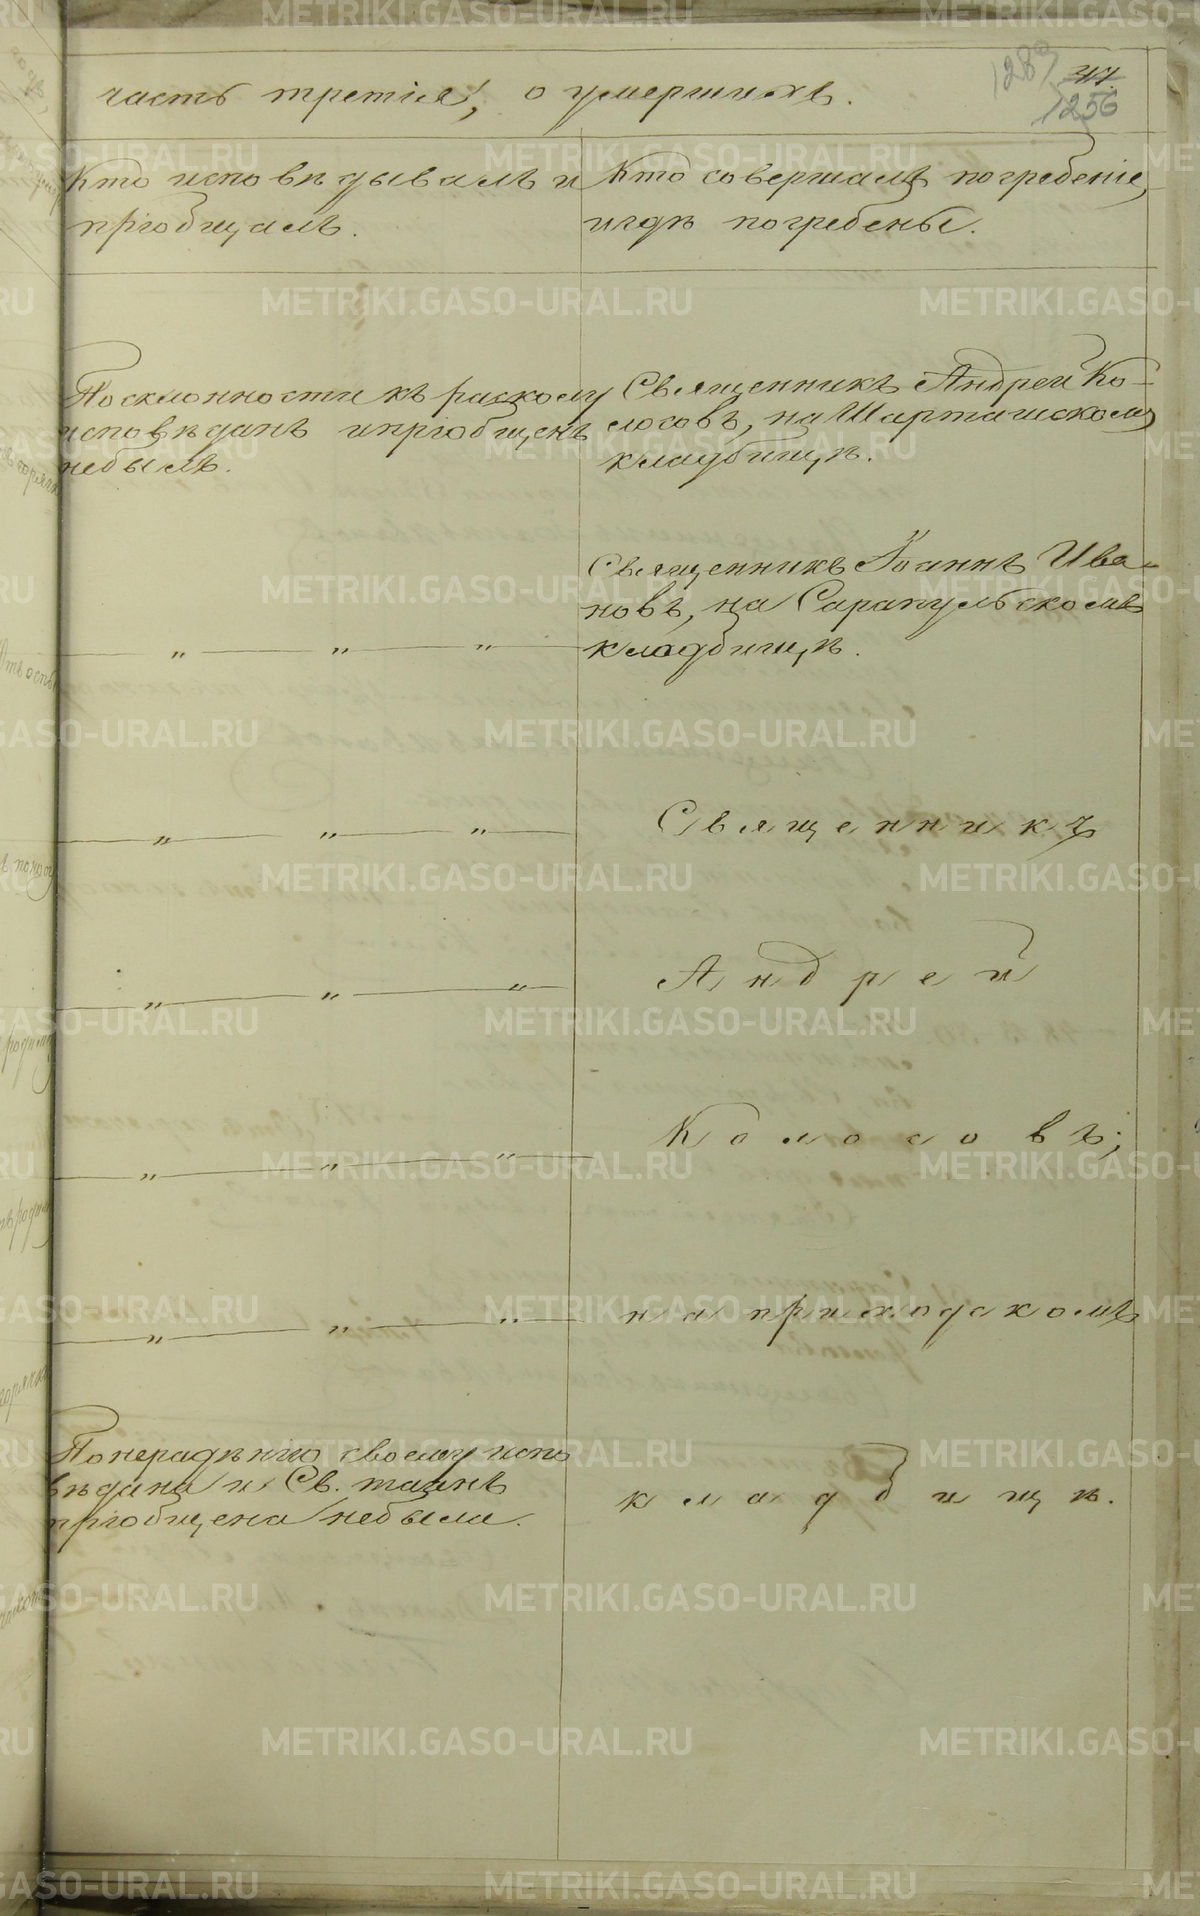 часть третія, о умершихъ.
1289
44
1256
Кто исповѣдывалъ и
пріобщалъ.
Кто совершалъ погребеніе,
и гдѣ погребены.
По склонности къ расколу
исповѣданъ и пріобщенъ
не былъ.
Священникъ Андрей Ко-
лосовъ, на Шарташскомъ
кладбищѣ.
Священникъ Іоаннъ Ива-
новъ, на Сарапульскомъ
кладбищѣ.
— „ — „ — „ —
— „ — „ — „ — Священникъ
— „ — „ — „ — Андрей
— „ — „ — „ — Колосовъ;
— „ — „ — „ — на приходскомъ
По нерадѣнію своему испо
вѣдана и Св. таинъ
пріобщена не была.
кладбищѣ.
METRIKI.GASO-URAL.RU